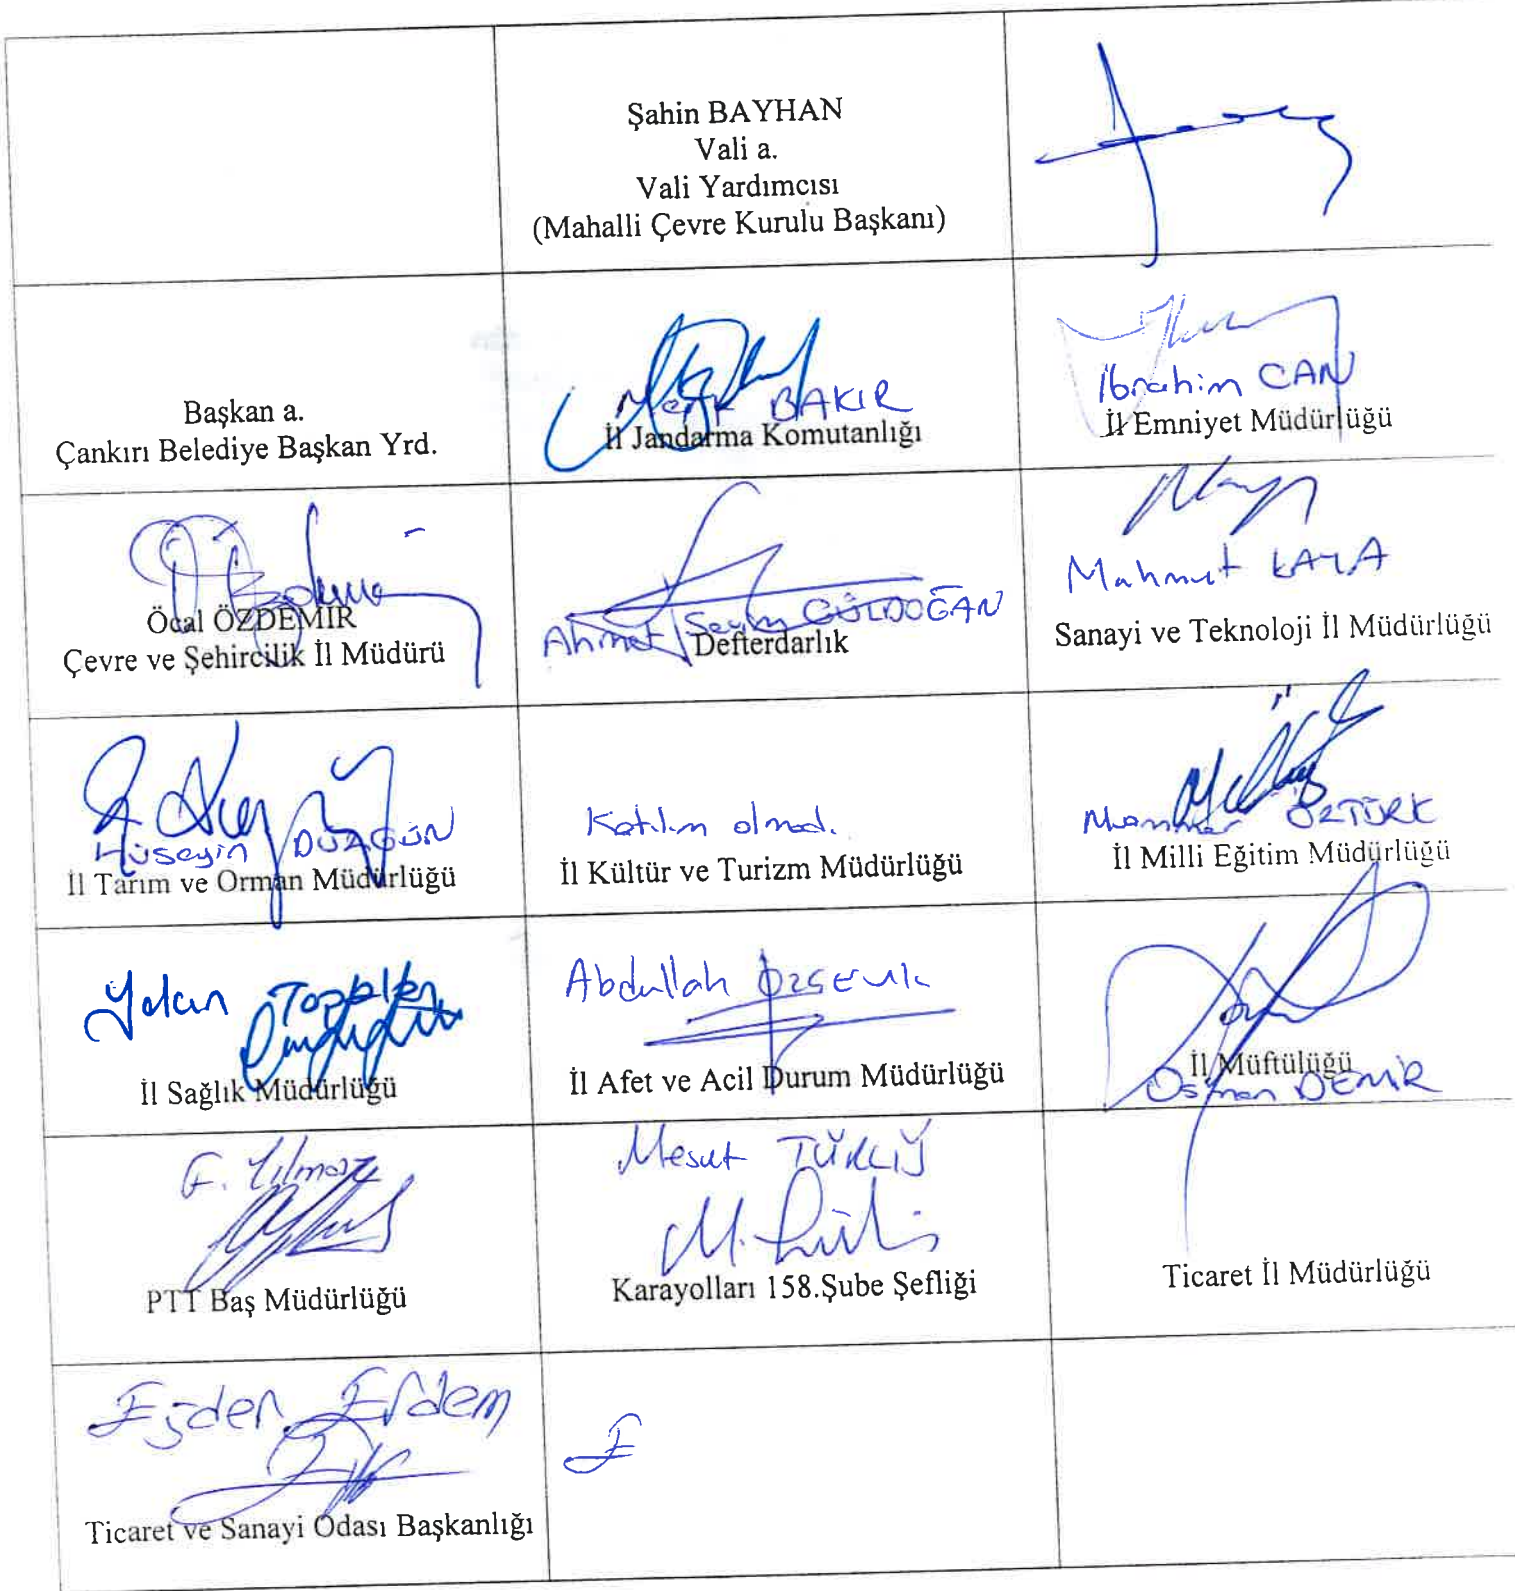 Şahin BAYHAN
Vali a.
Vali Yardımcısı
(Mahalli Çevre Kurulu Başkanı)
Başkan a.
Çankırı Belediye Başkan Yrd.
BAKIR
İl Jandarma Komutanlığı
İbrahim CAN
İl Emniyet Müdürlüğü
Öcal ÖZDEMİR
Çevre ve Şehircilik İl Müdürü
Ahmet GÜLDOĞAN
Defterdarlık
Mahmut KAYA
Sanayi ve Teknoloji İl Müdürlüğü
Hüseyin DÜZGÜN
İl Tarım ve Orman Müdürlüğü
Katılım olmad.
İl Kültür ve Turizm Müdürlüğü
ÖZTÜRK
İl Milli Eğitim Müdürlüğü
Yalçın
İl Sağlık Müdürlüğü
Abdullah
İl Afet ve Acil Durum Müdürlüğü
İl Müftülüğü
Osman DEMİR
F. Yılmaz
PTT Baş Müdürlüğü
Mesut
Karayolları 158.Şube Şefliği
Ticaret İl Müdürlüğü
Erdem
Ticaret ve Sanayi Odası Başkanlığı